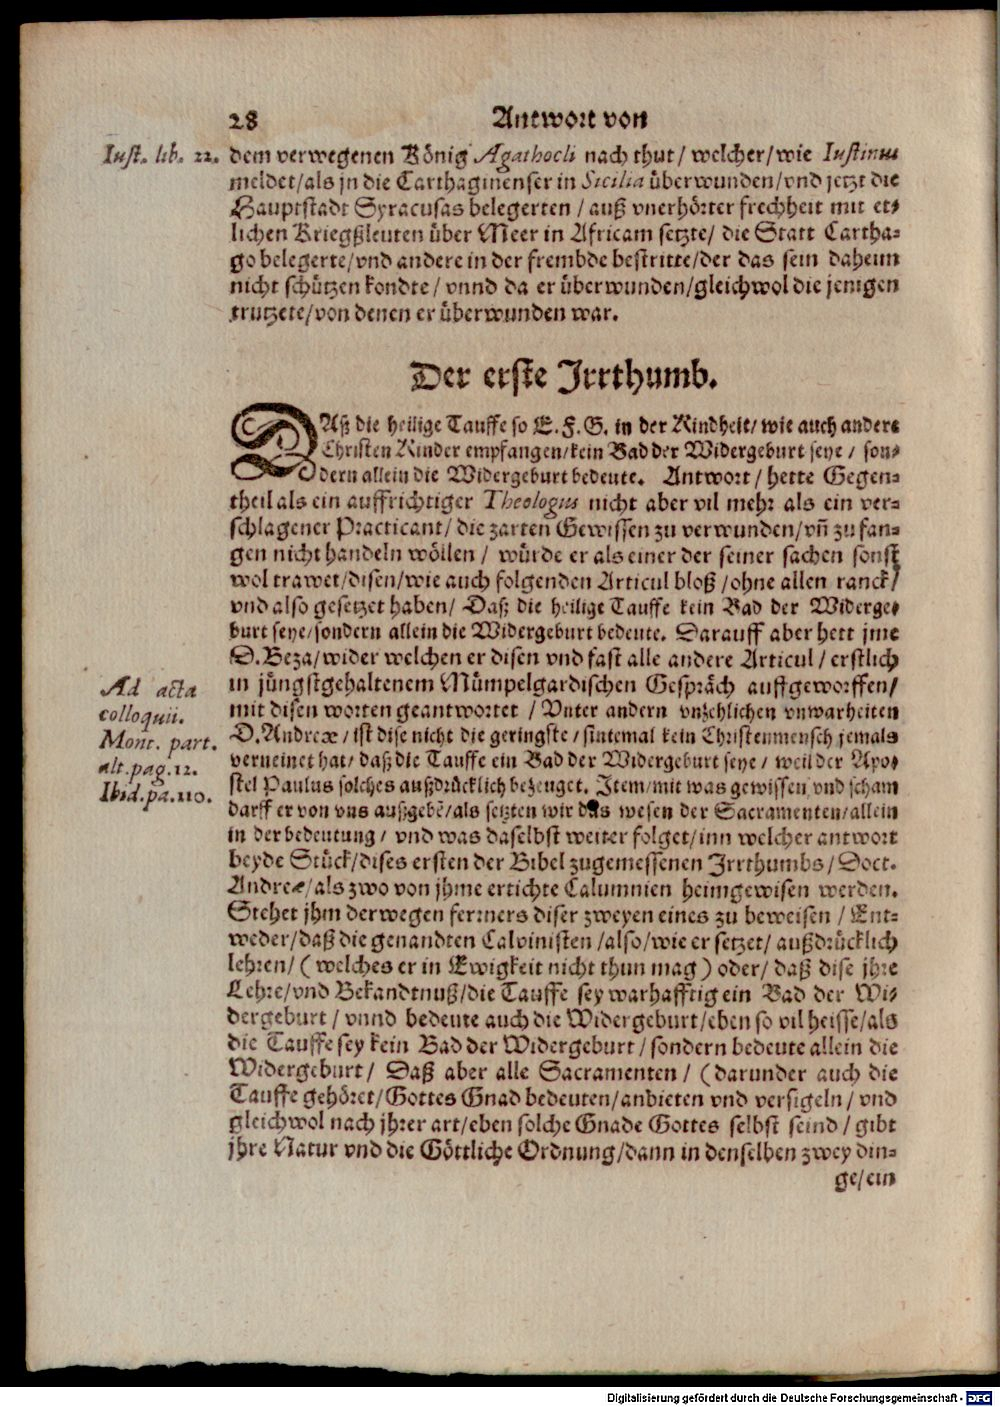 28 Antwort von
Iust. lib. 22.
dem verwegenen König Agathocli nach thut/ welcher/ wie Iustinus
meldet/ als jn die Carthaginenser in Sicilia überwunden/ vnd jetzt die
Hauptstadt Syracusas belegerten / auß vnerhörter frechheit mit et-
lichen Kriegßleuten über Meer in Africam setzte/ die Statt Cartha-
go belegerte/ vnd andere in der frembde bestritte/ der das sein daheim
nicht schützen kondte / vnnd da er überwunden/ gleichwol die jenigen
trutzete/ von denen er überwunden war.
Der erste Jrrthumb.
DAß die heilige Tauffe so E. F. G. in der Kindheit/ wie auch andere
Christen Kinder empfangen/ kein Bad der Widergeburt seye / son-
dern allein die Widergeburt bedeute. Antwort / hette Gegen-
theil als ein auffrichtiger Theologus nicht aber vil mehr als ein ver-
schlagener Practicant/ die zarten Gewissen zu verwunden/ vñ zu fan-
gen nicht handeln wöllen / würde er als einer der seiner sachen sonst
wol trawet/ disen/ wie auch folgenden Articul bloß / ohne allen ranck/
vnd also gesetzet haben/ Daß die heilige Tauffe kein Bad der Widerge-
burt seye/ sondern allein die Widergeburt bedeute. Darauff aber hett jme
D. Beza/ wider welchen er disen vnd fast alle andere Articul / erstlich
in jüngstgehaltenem Mümpelgardischen Gespräch auffgeworffen/
mit disen worten geantwortet / Vnter andern vnzehlichen vnwarheiten
D. Andreæ / ist dise nicht die geringste / sintemal kein Christenmensch jemals
verneinet hat/ daß die Tauffe ein Bad der Widergeburt seye / weil der Apo-
stel Paulus solches außdrücklich bezeuget. Item/ mit was gewissen vnd scham
darff er von vns außgebẽ/ als setzten wir das wesen der Sacramenten/ allein
in der bedeutung / vnd was daselbst weiter folget/ inn welcher antwort
beyde Stück/ dises ersten der Bibel zugemessenen Jrrthumbs / Doct.
Andreæ/ als zwo von jhme ertichte Calumnien heimgewisen werden.
Stehet jhm derwegen ferrners diser zweyen eines zu beweisen / Ent-
weder/ daß die genandten Calvinisten / also/ wie er setzet/ außdrücklich
lehren/ ( welches er in Ewigkeit nicht thun mag ) oder/ daß dise jhre
Lehre/ vnd Bekandtnuß/ die Tauffe sey warhafftig ein Bad der Wi-
dergeburt / vnnd bedeute auch die Widergeburt/ eben so vil heisse/ als
die Tauffe sey kein Bad der Widergeburt / sondern bedeute allein die
Widergeburt / Daß aber alle Sacramenten / (darunder auch die
Tauffe gehöret/ Gottes Gnad bedeuten/ anbieten vnd versigeln / vnd
gleichwol nach jhrer art/ eben solche Gnade Gottes selbst seind / gibt
jhre Natur vnd die Göttliche Ordnung/ dann in denselben zwey din-
ge/ ein
Ad acta
colloquii.
Mont. part.
alt. pag. 12.
Ibid. pa. 110.
Digitalisierung gefördert durch die Deutsche Forschungsgemeinschaft - DFG